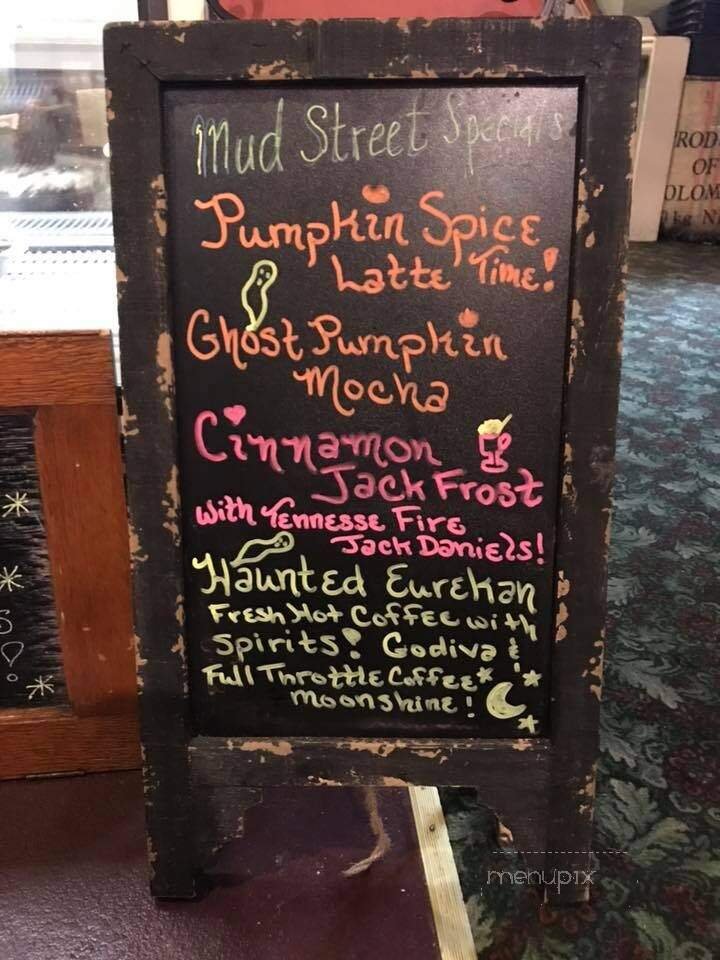 Mud Street Specials
Pumpkin Spice
Latte Time!
Ghost Pumpkin
Mocha
Cinnamon
Jack Frost
with Tennesse Fire
Jack Daniels!
Haunted Eurekan
Fresh Hot Coffee with
Spirits! Godiva &
Full Throttle Coffee*
moonshine!
ROD
OF
OLOM
menupix